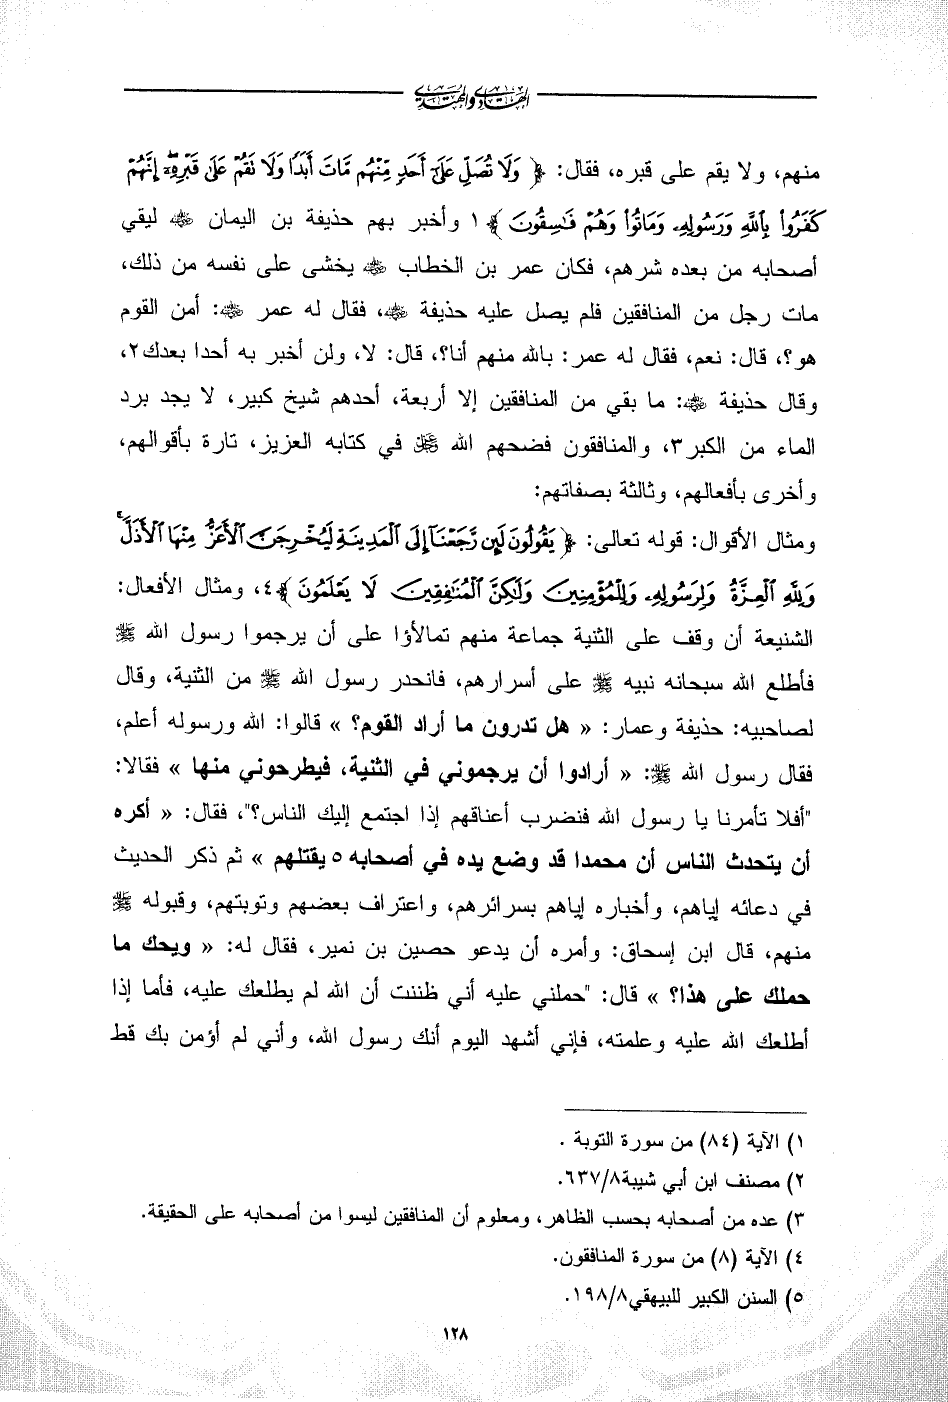 الهادي والمهتدي
منهم، ولا يقم على قبره، فقال: ﴿ وَلَا تُصَلِّ عَلَىٰٓ أَحَدٍ مِّنْهُم مَّاتَ أَبَدًا وَلَا تَقُمْ عَلَىٰ قَبْرِهِۦٓ ۖ إِنَّهُمْ
كَفَرُوا۟ بِٱللَّهِ وَرَسُولِهِۦ وَمَاتُوا۟ وَهُمْ فَـٰسِقُونَ ﴾١ وأخبر بهم حذيفة بن اليمان ﵁ ليقي
أصحابه من بعده شرهم، فكان عمر بن الخطاب ﵁ يخشى على نفسه من ذلك،
مات رجل من المنافقين فلم يصل عليه حذيفة ﵁، فقال له عمر ﵁: أمن القوم
هو؟، قال: نعم، فقال له عمر: بالله منهم أنا؟، قال: لا، ولن أخبر به أحدا بعدك٢،
وقال حذيفة ﵁: ما بقي من المنافقين إلا أربعة، أحدهم شيخ كبير، لا يجد برد
الماء من الكبر٣، والمنافقون فضحهم الله ﷻ في كتابه العزيز، تارة بأقوالهم،
وأخرى بأفعالهم، وثالثة بصفاتهم:
ومثال الأقوال: قوله تعالى: ﴿ يَقُولُونَ لَئِن رَّجَعْنَآ إِلَى ٱلْمَدِينَةِ لَيُخْرِجَنَّ ٱلْأَعَزُّ مِنْهَا ٱلْأَذَلَّ ۚ
وَلِلَّهِ ٱلْعِزَّةُ وَلِرَسُولِهِۦ وَلِلْمُؤْمِنِينَ وَلَـٰكِنَّ ٱلْمُنَـٰفِقِينَ لَا يَعْلَمُونَ ﴾٤، ومثال الأفعال:
الشنيعة أن وقف على الثنية جماعة منهم تمالأؤا على أن يرجموا رسول الله ﷺ
فأطلع الله سبحانه نبيه ﷺ على أسرارهم، فانحدر رسول الله ﷺ من الثنية، وقال
لصاحبيه: حذيفة وعمار: « هل تدرون ما أراد القوم؟ » قالوا: الله ورسوله أعلم،
فقال رسول الله ﷺ: « أرادوا أن يرجموني في الثنية، فيطرحوني منها » فقالا:
"أفلا تأمرنا يا رسول الله فنضرب أعناقهم إذا اجتمع إليك الناس؟"، فقال: « أكره
أن يتحدث الناس أن محمدا قد وضع يده في أصحابه ٥ يقتلهم » ثم ذكر الحديث
في دعائه إياهم، وأخباره إياهم بسرائرهم، واعتراف بعضهم وتوبتهم، وقبوله ﷺ
منهم، قال ابن إسحاق: وأمره أن يدعو حصين بن نمير، فقال له: « ويحك ما
حملك على هذا؟ » قال: "حملني عليه أني ظننت أن الله لم يطلعك عليه، فأما إذا
أطلعك الله عليه وعلمته، فإني أشهد اليوم أنك رسول الله، وأني لم أؤمن بك قط
١) الآية (٨٤) من سورة التوبة .
٢) مصنف ابن أبي شيبة٦٣٧/٨.
٣) عده من أصحابه بحسب الظاهر، ومعلوم أن المنافقين ليسوا من أصحابه على الحقيقة.
٤) الآية (٨) من سورة المنافقون.
٥) السنن الكبير للبيهقي١٩٨/٨.
١٢٨